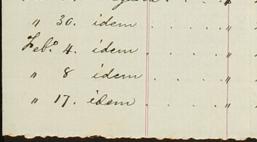 " 30. idem . . . . "
Feb.º 4. idem . . . . "
" 8 idem . . . . "
" 17. idem . . . . "